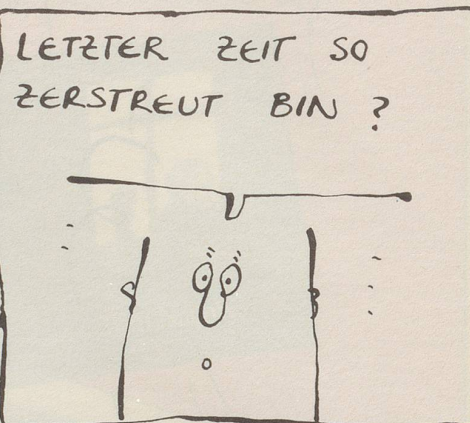 LETZTER ZEIT SO
ZERSTREUT BIN ?